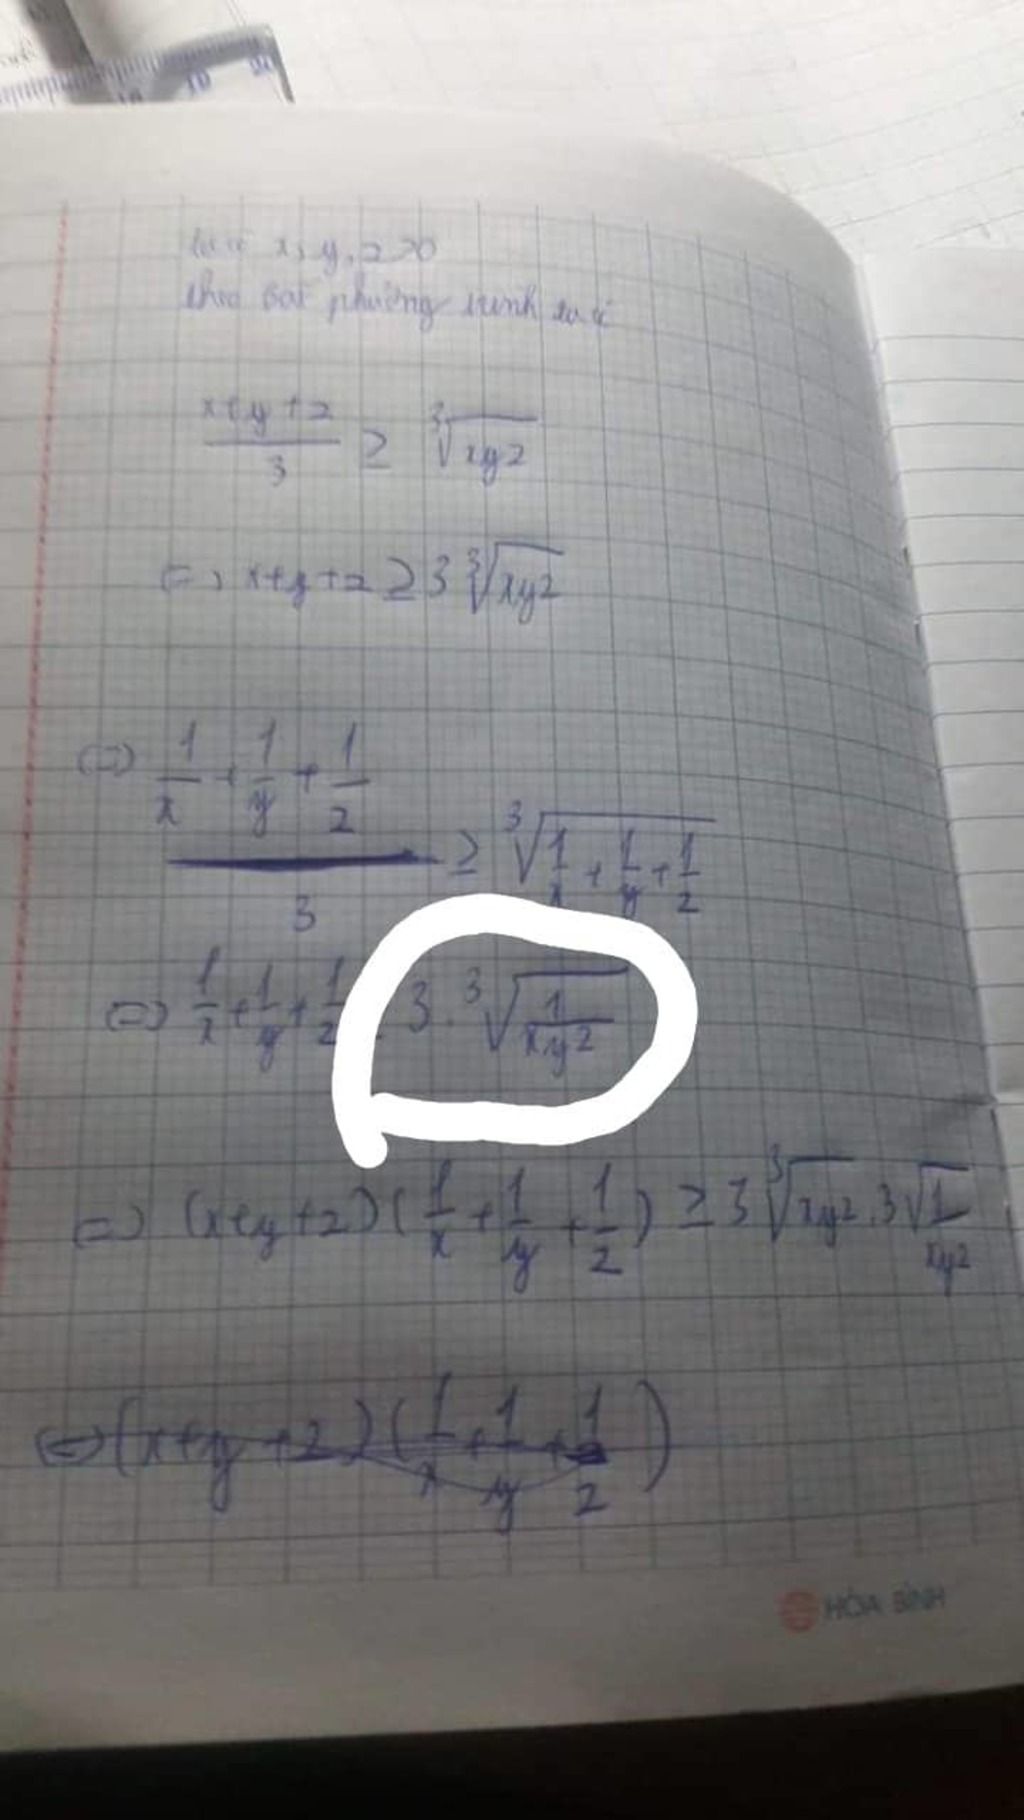 ta có x, y, z >0
theo bất phương trình ta có
x+y+z / 3 ≥ ∛xyz
=> x+y+z ≥ 3∛xyz
(=) 1/x + 1/y + 1/z / 3 ≥ ∛1/x + 1/y + 1/z
(=) 1/x + 1/y + 1/z 3 . ∛1/xyz
=> (x+y+z)(1/x + 1/y + 1/z) ≥ 3∛xyz . 3√1/xyz
(=) (x+y+z)(1/x + 1/y + 1/z)
HÒA BÌNH